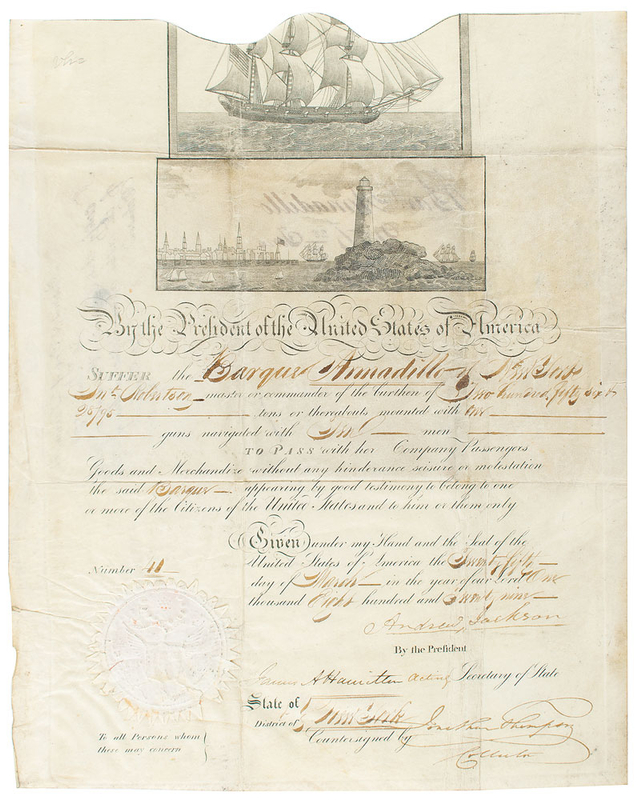 By the President of the United States of America
SUFFER the Barque Armadillo of New York
Jno. Robertson master or commander of the burthen of Two hundred fifty six &
tons or thereabouts mounted with no
guns navigated with men
TO PASS with her Company Passengers
Goods and Merchandize without any hinderance seisure or molestation
the said Barque appearing by good testimony to belong to one
or more of the Citizens of the United States and to him or them only
Given under my Hand and the Seal of the
United States of America the Twenty fifth
Number 11
day of March in the year of our Lord One
thousand Eight hundred and twenty nine
Andrew Jackson
By the President
James A Hamilton acting Secretary of State
State of
District of New York
Countersigned by Jonathan Thompson
Collector
To all Persons whom
these may concern